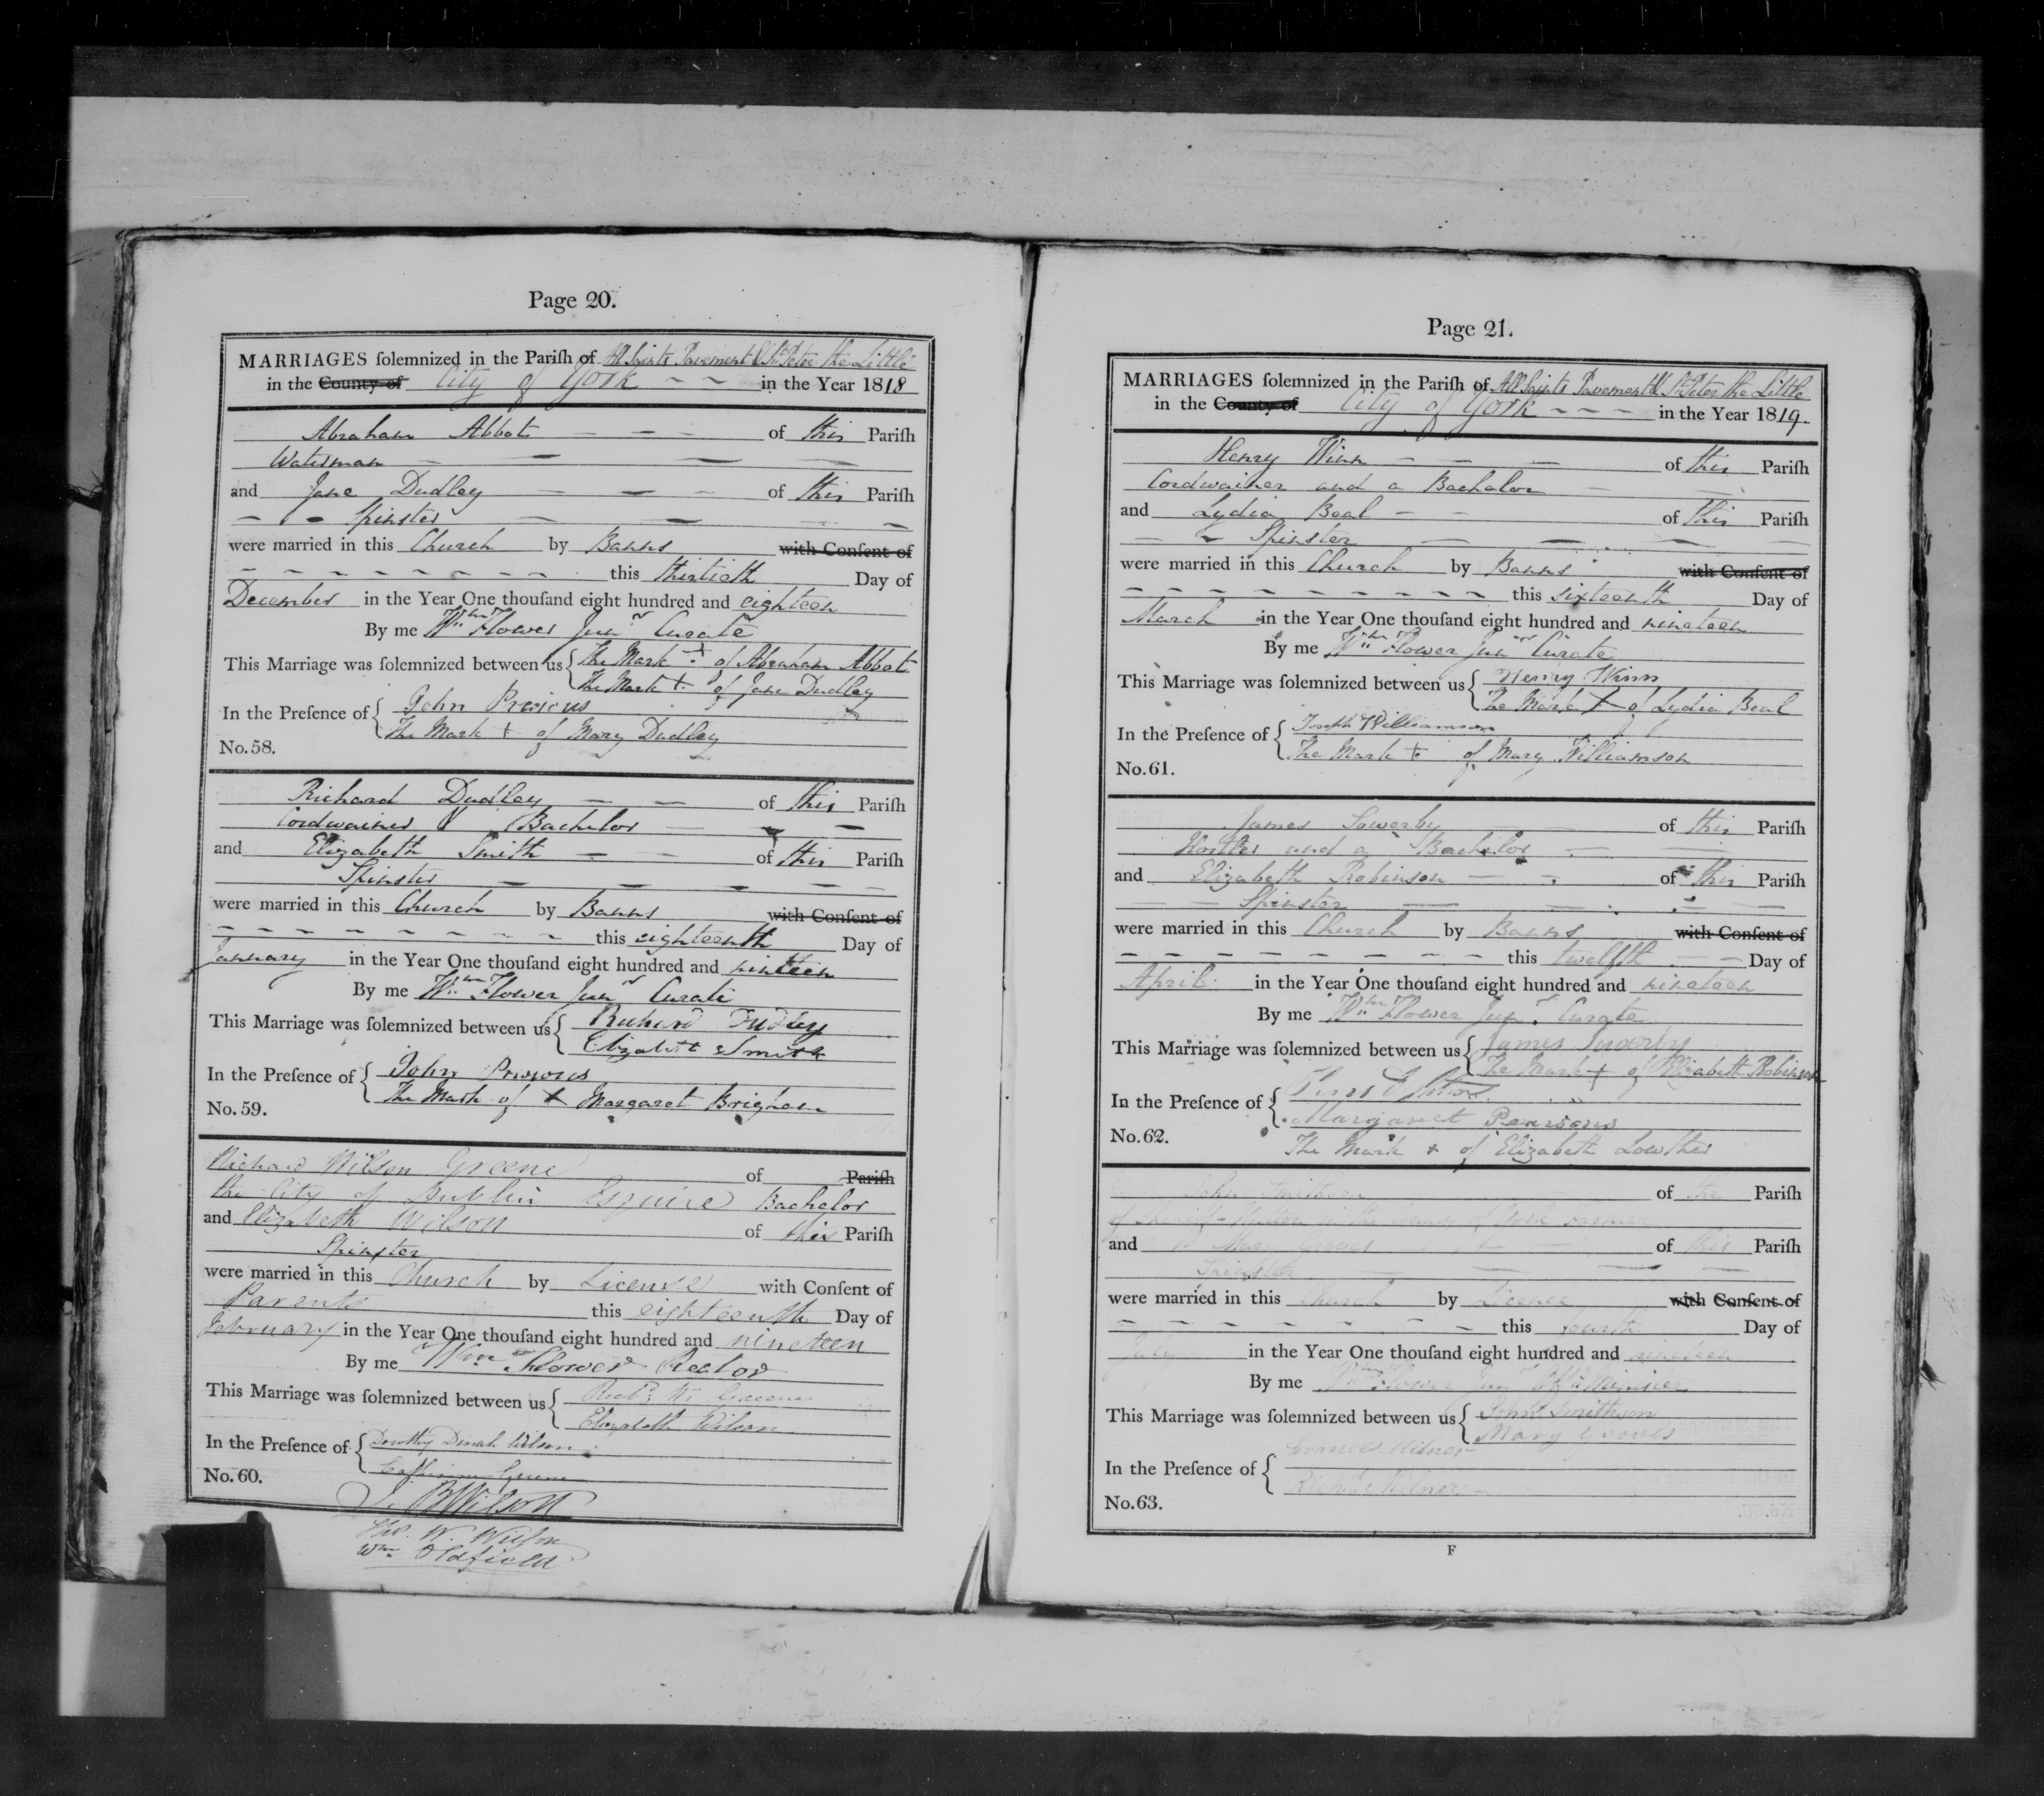 Page 20.
MARRIAGES solemnized in the Parish of All Saints Pavement & St Peter the Little
in the County of City of York in the Year 1818
Abraham Abbot of this Parish
Waterman
and Jane Dudley of this Parish
Spinster
were married in this Church by Banns with Consent of
this thirtieth Day of
December in the Year One thousand eight hundred and eighteen
By me Wm Flower Junr Curate
This Marriage was solemnized between us { The Mark + of Abraham Abbot
The Mark + of Jane Dudley
In the Presence of { John Precious
The Mark + of Mary Dudley
No. 58.
Richard Dudley of this Parish
Cordwainer & Bachelor
and Elizabeth Smith of this Parish
Spinster
were married in this Church by Banns with Consent of
this eighteenth Day of
January in the Year One thousand eight hundred and ninteen
By me Wm Flower Junr Curate
This Marriage was solemnized between us { Richard Dudley
Elizabeth Smith
In the Presence of { John Precious
The Mark of + Margaret Brigham
No. 59.
Richard Wilson Greene of Parish
the City of Dublin Esquire Bachelor
and Elizabeth Wilson of this Parish
Spinster
were married in this Church by License with Consent of
Parents this eighteenth Day of
February in the Year One thousand eight hundred and nineteen
By me Wm Flower Rector
This Marriage was solemnized between us { Richd W. Greene
Elizabeth Wilson
In the Presence of { Dorothy Dinah Wilson
Catherine Greene
No. 60.
Wilson
W. Wilson
Wm Oldfield
Page 21.
MARRIAGES solemnized in the Parish of All Saints Pavement & St Peter the Little
in the County of City of York in the Year 1819.
Henry Winn of this Parish
Cordwainer and a Bachelor
and Lydia Beal of this Parish
Spinster
were married in this Church by Banns with Consent of
this sixteenth Day of
March in the Year One thousand eight hundred and nineteen
By me Wm Flower Junr Curate
This Marriage was solemnized between us { Henry Winn
The Mark + of Lydia Beal
In the Presence of { Joseph Williamson
The Mark + of Mary Williamson
No. 61.
James Sowerby of this Parish
Hostler and a Bachelor
and Elizabeth Robinson of this Parish
Spinster
were married in this Church by Banns with Consent of
this twelfth Day of
April in the Year One thousand eight hundred and nineteen
By me Wm Flower Junr Curate
This Marriage was solemnized between us { James Sowerby
The Mark + of Elizabeth Robinson
In the Presence of {
Margaret Pearsons
No. 62.
The Mark + of Elizabeth Lowther
John Smithson of the Parish
of Sheriff-Hutton in the County of York Farmer
and Mary Groves of this Parish
Spinster
were married in this Church by Licence with Consent of
this fourth Day of
July in the Year One thousand eight hundred and nineteen
By me Wm Flower Junr Offg Minister
This Marriage was solemnized between us { John Smithson
Mary Groves
In the Presence of { Frances Milner
Richd Milner
No. 63.
F